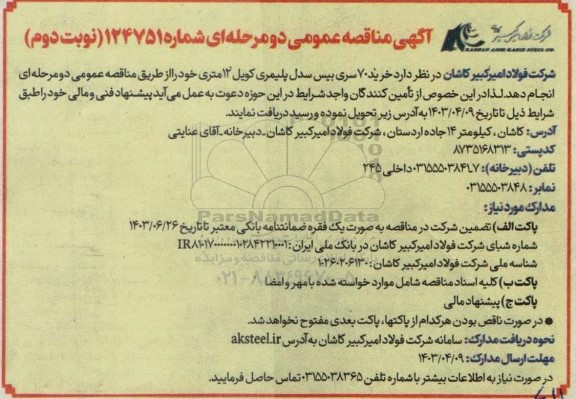 شرکت فولاد امیرکبیر کاشان
KASHAN AMIR KABIR STEEL CO.
آگهی مناقصه عمومی دو مرحله‌ای شماره ۱۲۴۷۵۱ (نوبت دوم)
شرکت فولاد امیرکبیر کاشان در نظر دارد خرید ۷۰ سری بیس سدل پلیمری کویل ۱۲ متری خود را از طریق مناقصه عمومی دو مرحله ای
انجام دهد. لذا در این خصوص از تأمین کنندگان واجد شرایط در این حوزه دعوت به عمل می‌آید پیشنهاد فنی و مالی خود را طبق
شرایط ذیل تا تاریخ ۱۴۰۳/۰۴/۰۹ به آدرس زیر تحویل نموده و رسید دریافت نمایند.
آدرس: کاشان، کیلومتر ۱۴ جاده اردستان، شرکت فولاد امیرکبیر کاشان-دبیرخانه-آقای عنایتی
کدپستی: ۸۷۳۵۱۶۸۳۱۳
تلفن (دبیرخانه): ۷-۰۳۱۵۵۵۰۳۸۴۱ داخلی ۲۴۵
نمابر: ۰۳۱۵۵۵۰۳۸۴۸
مدارک مورد نیاز:
پاکت الف) تضمین شرکت در مناقصه به صورت یک فقره ضمانتنامه بانکی معتبر تا تاریخ ۱۴۰۳/۰۶/۲۶
شماره شبای شرکت فولاد امیرکبیر کاشان در بانک ملی ایران:
شناسه ملی شرکت فولاد امیرکبیر کاشان: ۱۰۲۶۰۲۰۶۱۳۰
پاکت ب) کلیه اسناد مناقصه شامل موارد خواسته شده با مهر و امضا
پاکت ج) پیشنهاد مالی
● در صورت ناقص بودن هرکدام از پاکتها، پاکت بعدی مفتوح نخواهد شد.
نحوه دریافت مدارک: سامانه شرکت فولاد امیرکبیر کاشان به آدرس aksteel.ir
مهلت ارسال مدارک: ۱۴۰۳/۰۴/۰۹
در صورت نیاز به اطلاعات بیشتر با شماره تلفن ۰۳۱۵۵۰۳۸۳۶۵ تماس حاصل فرمایید.
ParsNamadData
۰۲۱-۸۸۳۴۹۶۷۰-۵